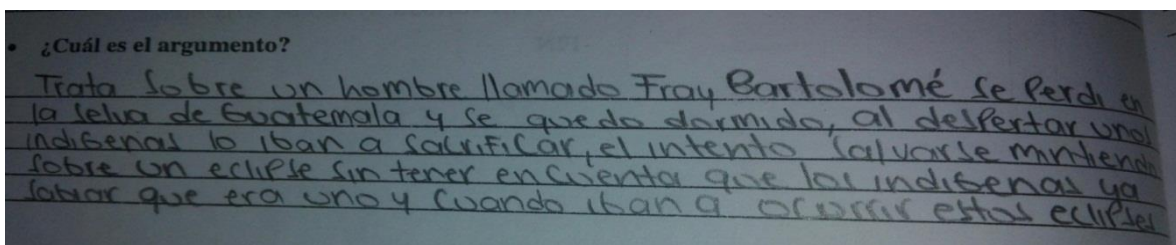 • ¿Cuál es el argumento?
Trata sobre un hombre llamado Fray Bartolomé se Perdi en
la selva de Guatemala y se quedo dormido, al despertar unos
indigenas lo iban a sacrificar, el intento salvarse mintiendo
sobre un eclipse sin tener en cuenta que los indigenas ya
sabiar que era uno y cuando iban a ocurrir estos eclipses